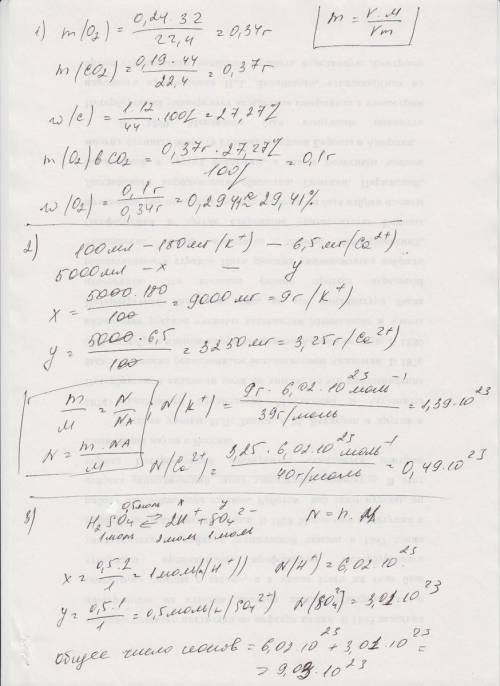 1) m(O2) = 0,24·32 / 22,4 = 0,34г
m = V·M / Vm
m(CO2) = 0,19·44 / 22,4 = 0,37г
w(C) = 1·12 / 44 · 100% = 27,27%
m(O2) в CO2 = 0,37г · 27,27% / 100% = 0,1г
w(O2) = 0,1г / 0,34г = 0,2941 ≈ 29,41%
2) 100мл – 180мг (K⁺) – 6,5мг (Ca²⁺)
5000мл – x – y
x = 5000·180 / 100 = 9000мг = 9г (K⁺)
y = 5000·6,5 / 100 = 3250мг = 3,25г (Ca²⁺)
m / M = N / NA ; N(K⁺) = 9г · 6,02·10²³ моль⁻¹ / 39г/моль = 1,39·10²³
N = m·NA / M
N(Ca²⁺) = 3,25 · 6,02·10²³ моль⁻¹ / 40г/моль = 0,49·10²³
3) 0,5моль x y
H2SO4 ⇄ 2H⁺ + SO4²⁻ N = n·
1моль 2моль 1моль
x = 0,5·2 / 1 = 1моль(n(H⁺)) N(H⁺) = 6,02·10²³
y = 0,5·1 / 1 = 0,5моль(n(SO4²⁺) N(SO4²⁻) = 3,01·10²³
общее число ионов = 6,02·10²³ + 3,01·10²³ =
= 9,03·10²³